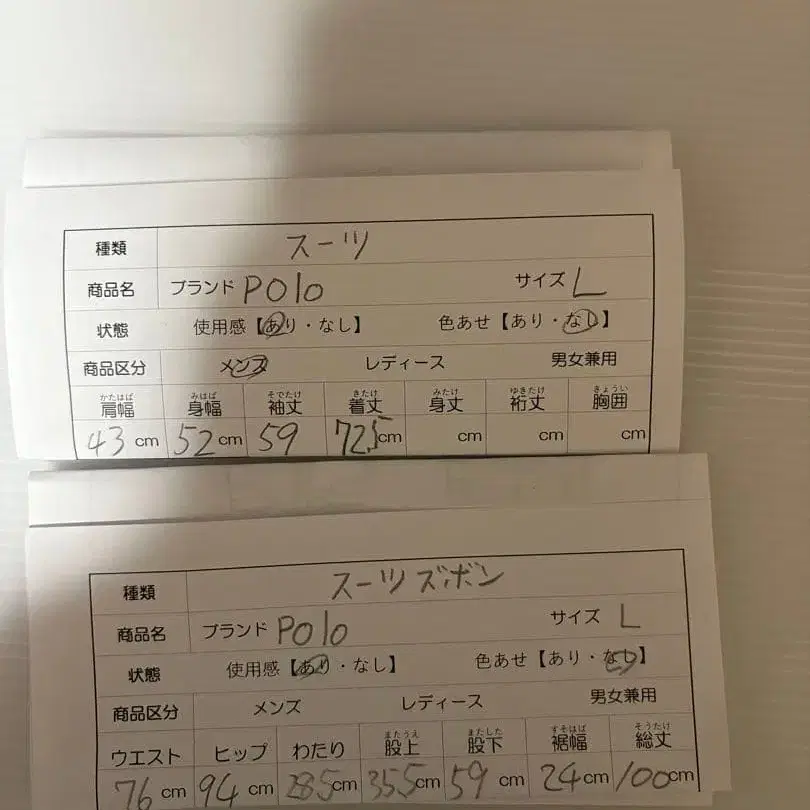 種類 スーツ
商品名 ブランド POlo サイズ L
状態 使用感【あり・なし】 色あせ【あり・なし】
商品区分 メンズ レディース 男女兼用
かたはば みはば そでたけ きたけ みたけ ゆきたけ きょうい
肩幅 身幅 袖丈 着丈 身丈 裄丈 胸囲
43 cm 52 cm 59 72.5 cm cm cm cm
種類 スーツズボン
商品名 ブランド POlo サイズ L
状態 使用感【あり・なし】 色あせ【あり・なし】
商品区分 メンズ レディース 男女兼用
またうえ またした すそはば そうたけ
ウエスト ヒップ わたり 股上 股下 裾幅 総丈
76 cm 94 cm 28.5 cm 35.5 cm 59 cm 24 cm 100 cm